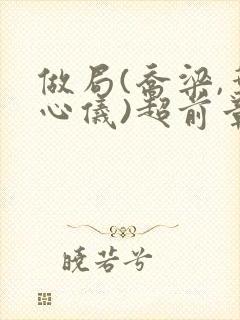 做局(乔梁,
心仪)超前
晓若兮